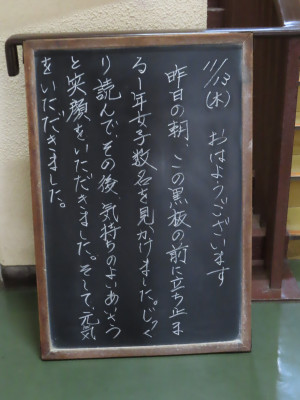 11/13(木) おはようございます
昨日の朝、この黒板の前に立ち止ま
る1年女子数名を見かけました。じっく
り読んで、その後、気持ちのよいあいさつ
と笑顔をいただきました。そして、元気
をいただきました。